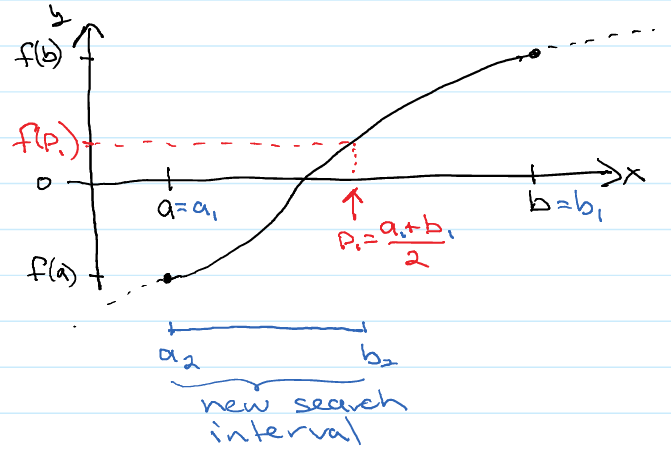 y
f(b)
f(p₁)
0
x
a=a₁
b=b₁
p₁=a₁+b₁
2
f(a)
a₂
b₂
new search
interval